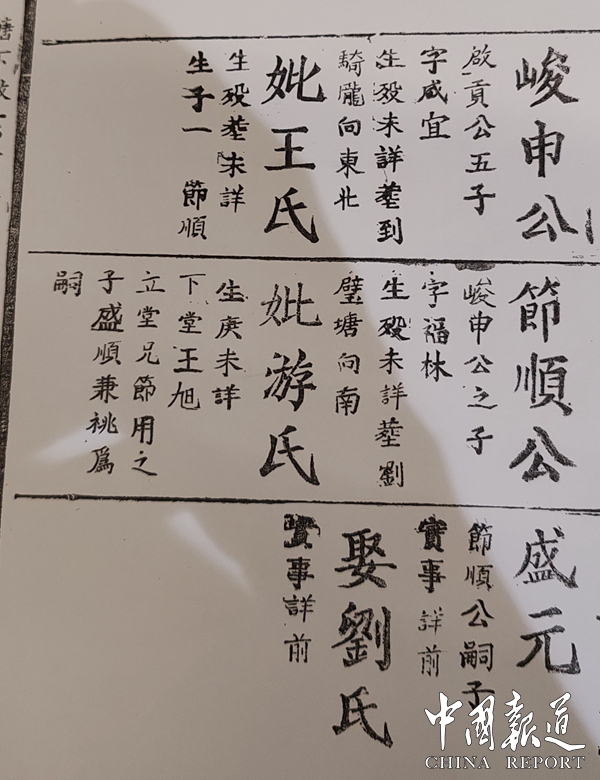 峻申公
啟貢公五子
字咸宜
生殁未詳塟到
騎隴向東北
妣王氏
生殁塟未詳
生子一 節順
節順公
峻申公之子
字福林
生殁未詳塟劉
璧塘向南
妣游氏
生庚未詳
下堂王旭
立堂兄節用之
子盛順兼祧爲
嗣
盛元
節順公嗣子
實事詳前
娶劉氏
實事詳前
中國報道
CHINA REPORT